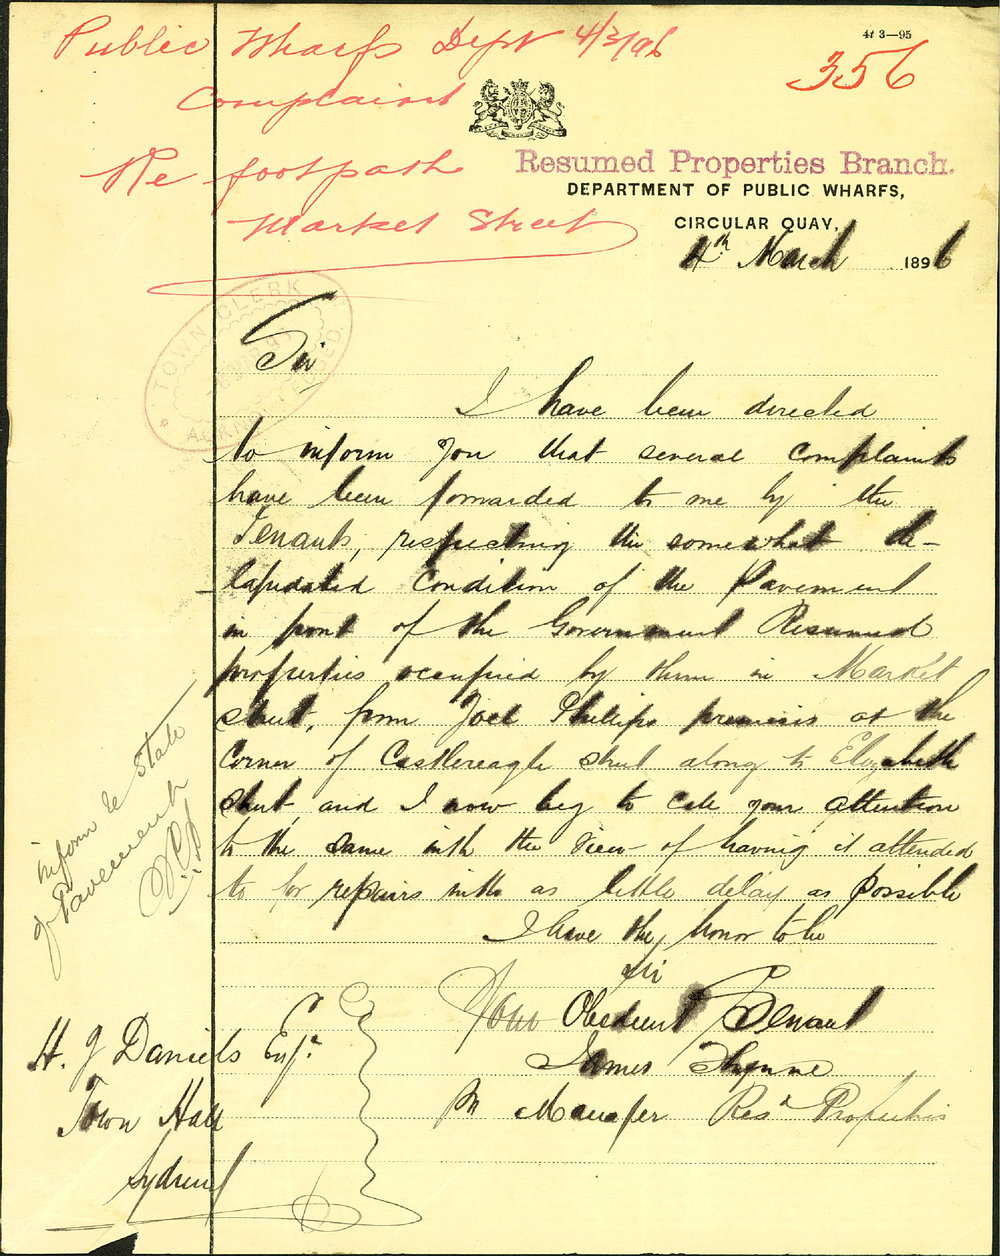 Public Wharfs Dept 4/3/96
Complaint
Re footpath
Market Street
4t 3—95
356
Resumed Properties Branch.
DEPARTMENT OF PUBLIC WHARFS,
CIRCULAR QUAY,
4th March 1896
TOWN CLERK
ACKNOWLEDGED.
Sir
I have been directed
to inform you that several complaints
have been forwarded to me by the
Tenants, respecting the somewhat de-
lapidated condition of the Pavement
in front of the Government Resumed
properties occupied by them in Market
street, from Joel Phillips premises at the
Corner of Castlereagh street along to Elizabeth
street and I now beg to call your attention
to the same with the view of having it attended
to for repairs with as little delay as possible
I have the honor to be
Sir
Your Obedient Servant
James Thynne
Manager Resd Properties
inform re state
of Pavement
H. J Daniels Esqr
Town Hall
Sydney